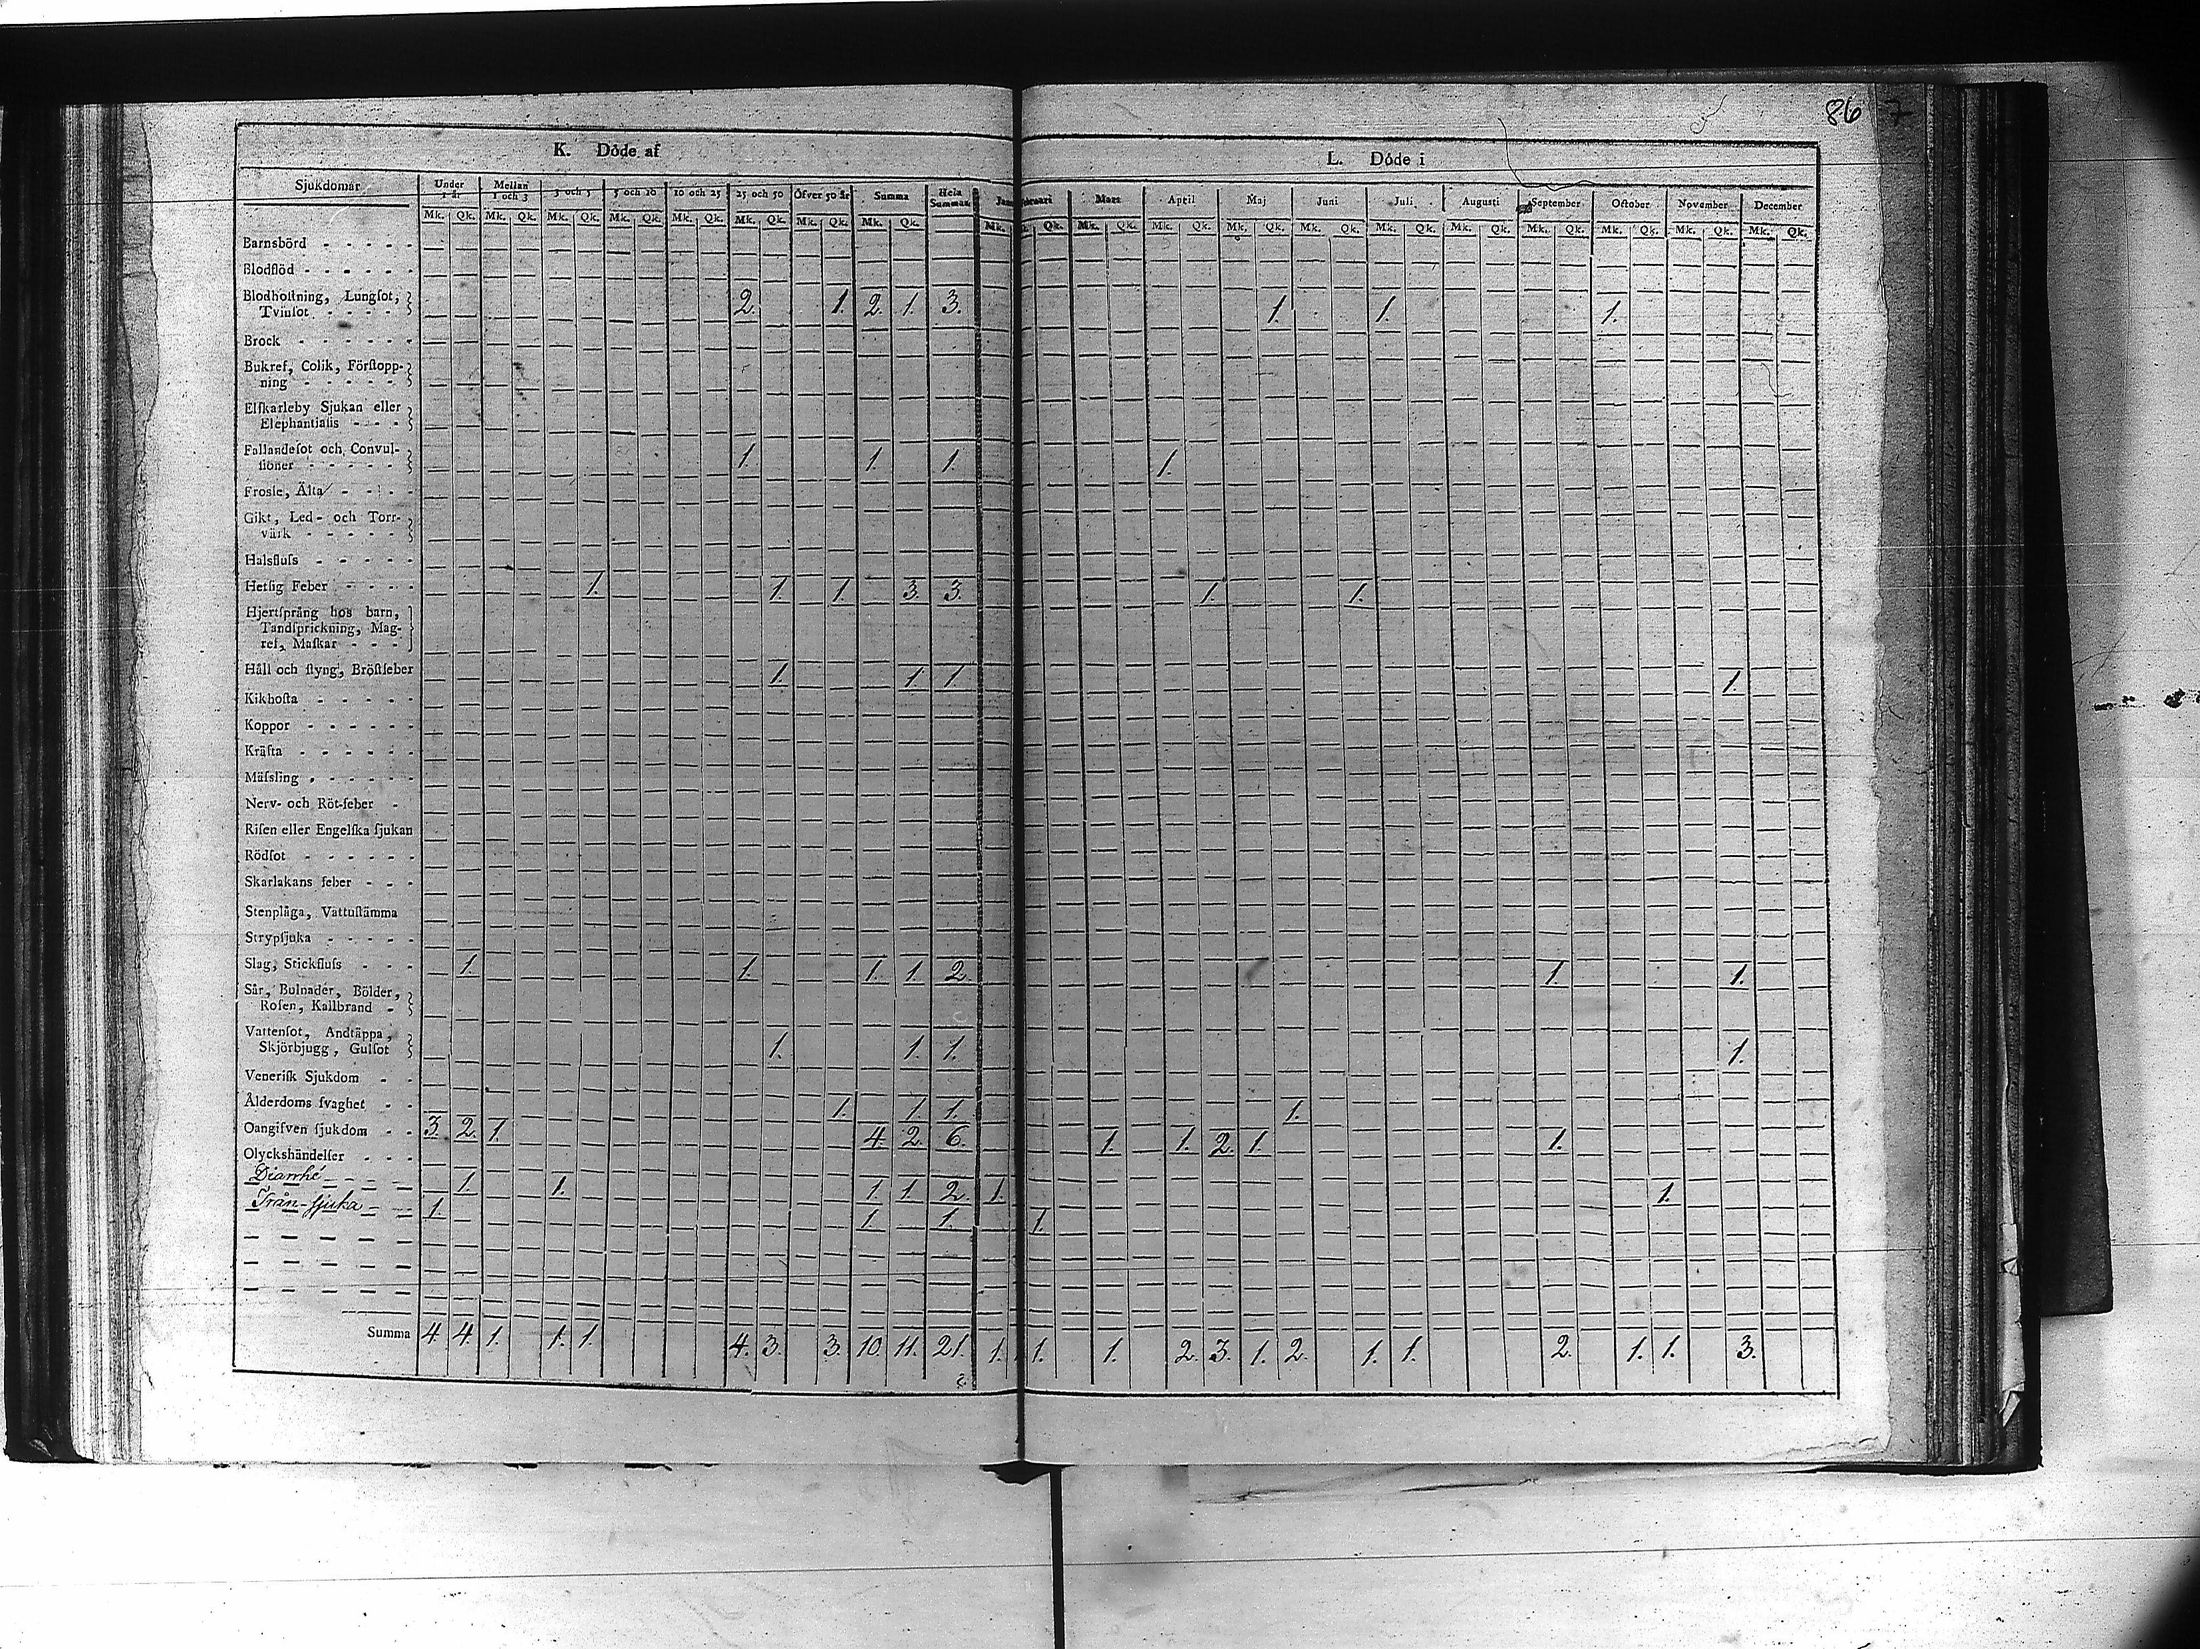 86 7
K. Döde af
L. Döde i
Sjukdomar Under 1 år Mellan 1 och 3 3 och 5 5 och 10 10 och 25 25 och 50 Öfver 50 år Summa Hela Summan Mars April Maj Juni Juli Augusti September October November December
Mk. Qk. Mk. Qk. Mk. Qk. Mk. Qk. Mk. Qk. Mk. Qk. Mk. Qk. Mk. Qk. Mk. Qk. Mk. Qk. Mk. Qk. Mk. Qk. Mk. Qk. Mk. Qk. Mk. Qk. Mk. Qk. Mk. Qk. Mk. Qk. Mk. Qk.
Barnsbörd - - - - -
Blodflöd - - - - - -
Blodhostning, Lungsot,
Tvinsot - - - - 2. 1. 2. 1. 3. 1. 1. 1.
Brock - - - - - -
Bukref, Colik, Förstopp-
ning - - - - -
Elfkarleby Sjukan eller
Elephantiasis - - - -
Fallandesot och Convul-
sioner - - - - - 1. 1. 1. 1.
Frosle, Älta - - - -
Gikt, Led- och Torr-
värk - - - - -
Halsfluss - - - - -
Hetsig Feber - - - - 1. 1. 1. 3. 3. 1. 1.
Hjertsprång hos barn,
Tandsprickning, Mag-
ref, Maskar - - -
Håll och styng, Bröstfeber 1. 1. 1. 1.
Kikhosta - - - - -
Koppor - - - - - -
Kräfta - - - - - -
Mässling - - - - - -
Nerv- och Röt-feber -
Risen eller Engelska sjukan
Rödsot - - - - - -
Skarlakans feber - - -
Stenplåga, Vattustämma
Strypsjuka - - - - -
Slag, Stickfluss - - - 1. 1. 1. 1. 2. 1. 1.
Sår, Bulnader, Bölder,
Rosen, Kallbrand -
Vattensot, Andtäppa,
Skjörbjugg, Gulsot 1. 1. 1. 1.
Venerisk Sjukdom - -
Ålderdoms svaghet - - 1. 1. 1. 1.
Oangifven sjukdom - - 3. 2. 1. 4. 2. 6. 1. 1. 2. 1. 1.
Olyckshändelser - - -
Diarrhé 1. 1. 1. 1. 2. 1. 1.
Trån-sjuka 1. 1. 1. 1.
Summa 4. 4. 1. 1. 1. 4. 3. 3. 10. 11. 21. 1. 1. 1. 2. 3. 1. 2. 1. 1. 2. 1. 1. 3.